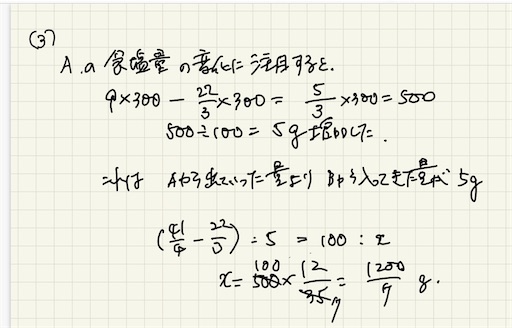 (3)
A.a 食塩量の変化に注目すると、
9×300 − 22/3×300 = 5/3×300 = 500
500÷100 = 5g増加した.
これは Aから出ていった量より Bから入ってきた量が 5g
(41/4 − 22/3) : 5 = 100 : x
x = 100 500 × 12/35 7 = 1200/7 g.